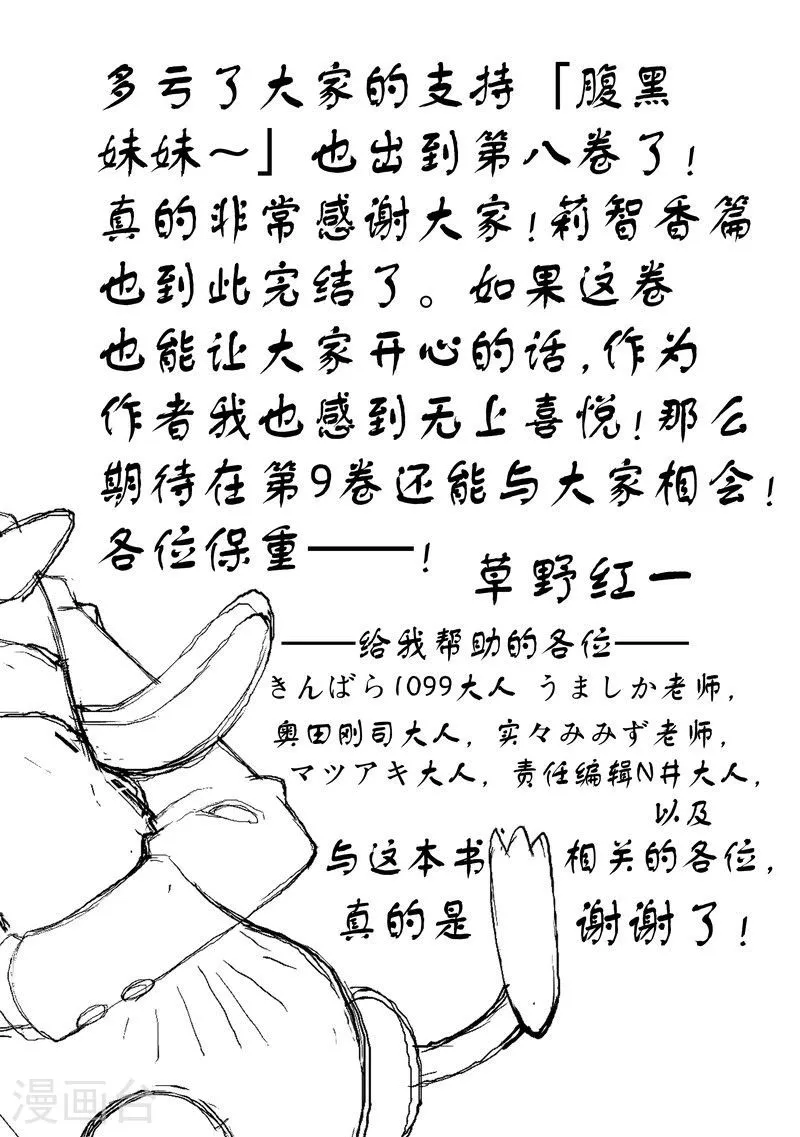 多亏了大家的支持「腹黑
妹妹～」也出到第八卷了!
真的非常感谢大家!莉智香篇
也到此完结了。如果这卷
也能让大家开心的话,作为
作者我也感到无上喜悦!那么
期待在第9卷还能与大家相会!
各位保重——!
草野红一
——给我帮助的各位——
きんばら1099大人 うましか老师,
奥田刚司大人,实々みみず老师,
マツアキ大人,责任编辑N井大人,
以及
与这本书 相关的各位,
真的是 谢谢了!
漫画台